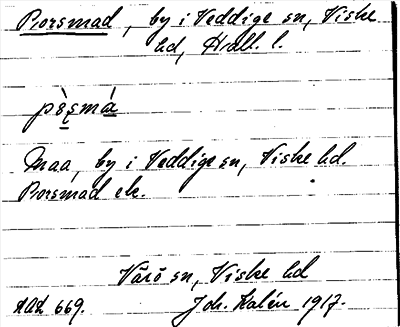 Porsmad, by i Veddige sn, Viske
hd, Hall. l.
pò̤ṣmá
Maa, by i Veddige sn, Viske hd.
Porsmad ek.
Värö sn, Viske hd
669. Joh. Kalén 1917.